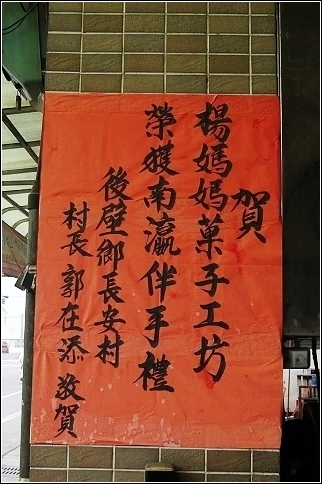 賀
楊媽媽菓子工坊
榮獲南瀛伴手禮
後壁鄉長安村
村長郭在添敬賀